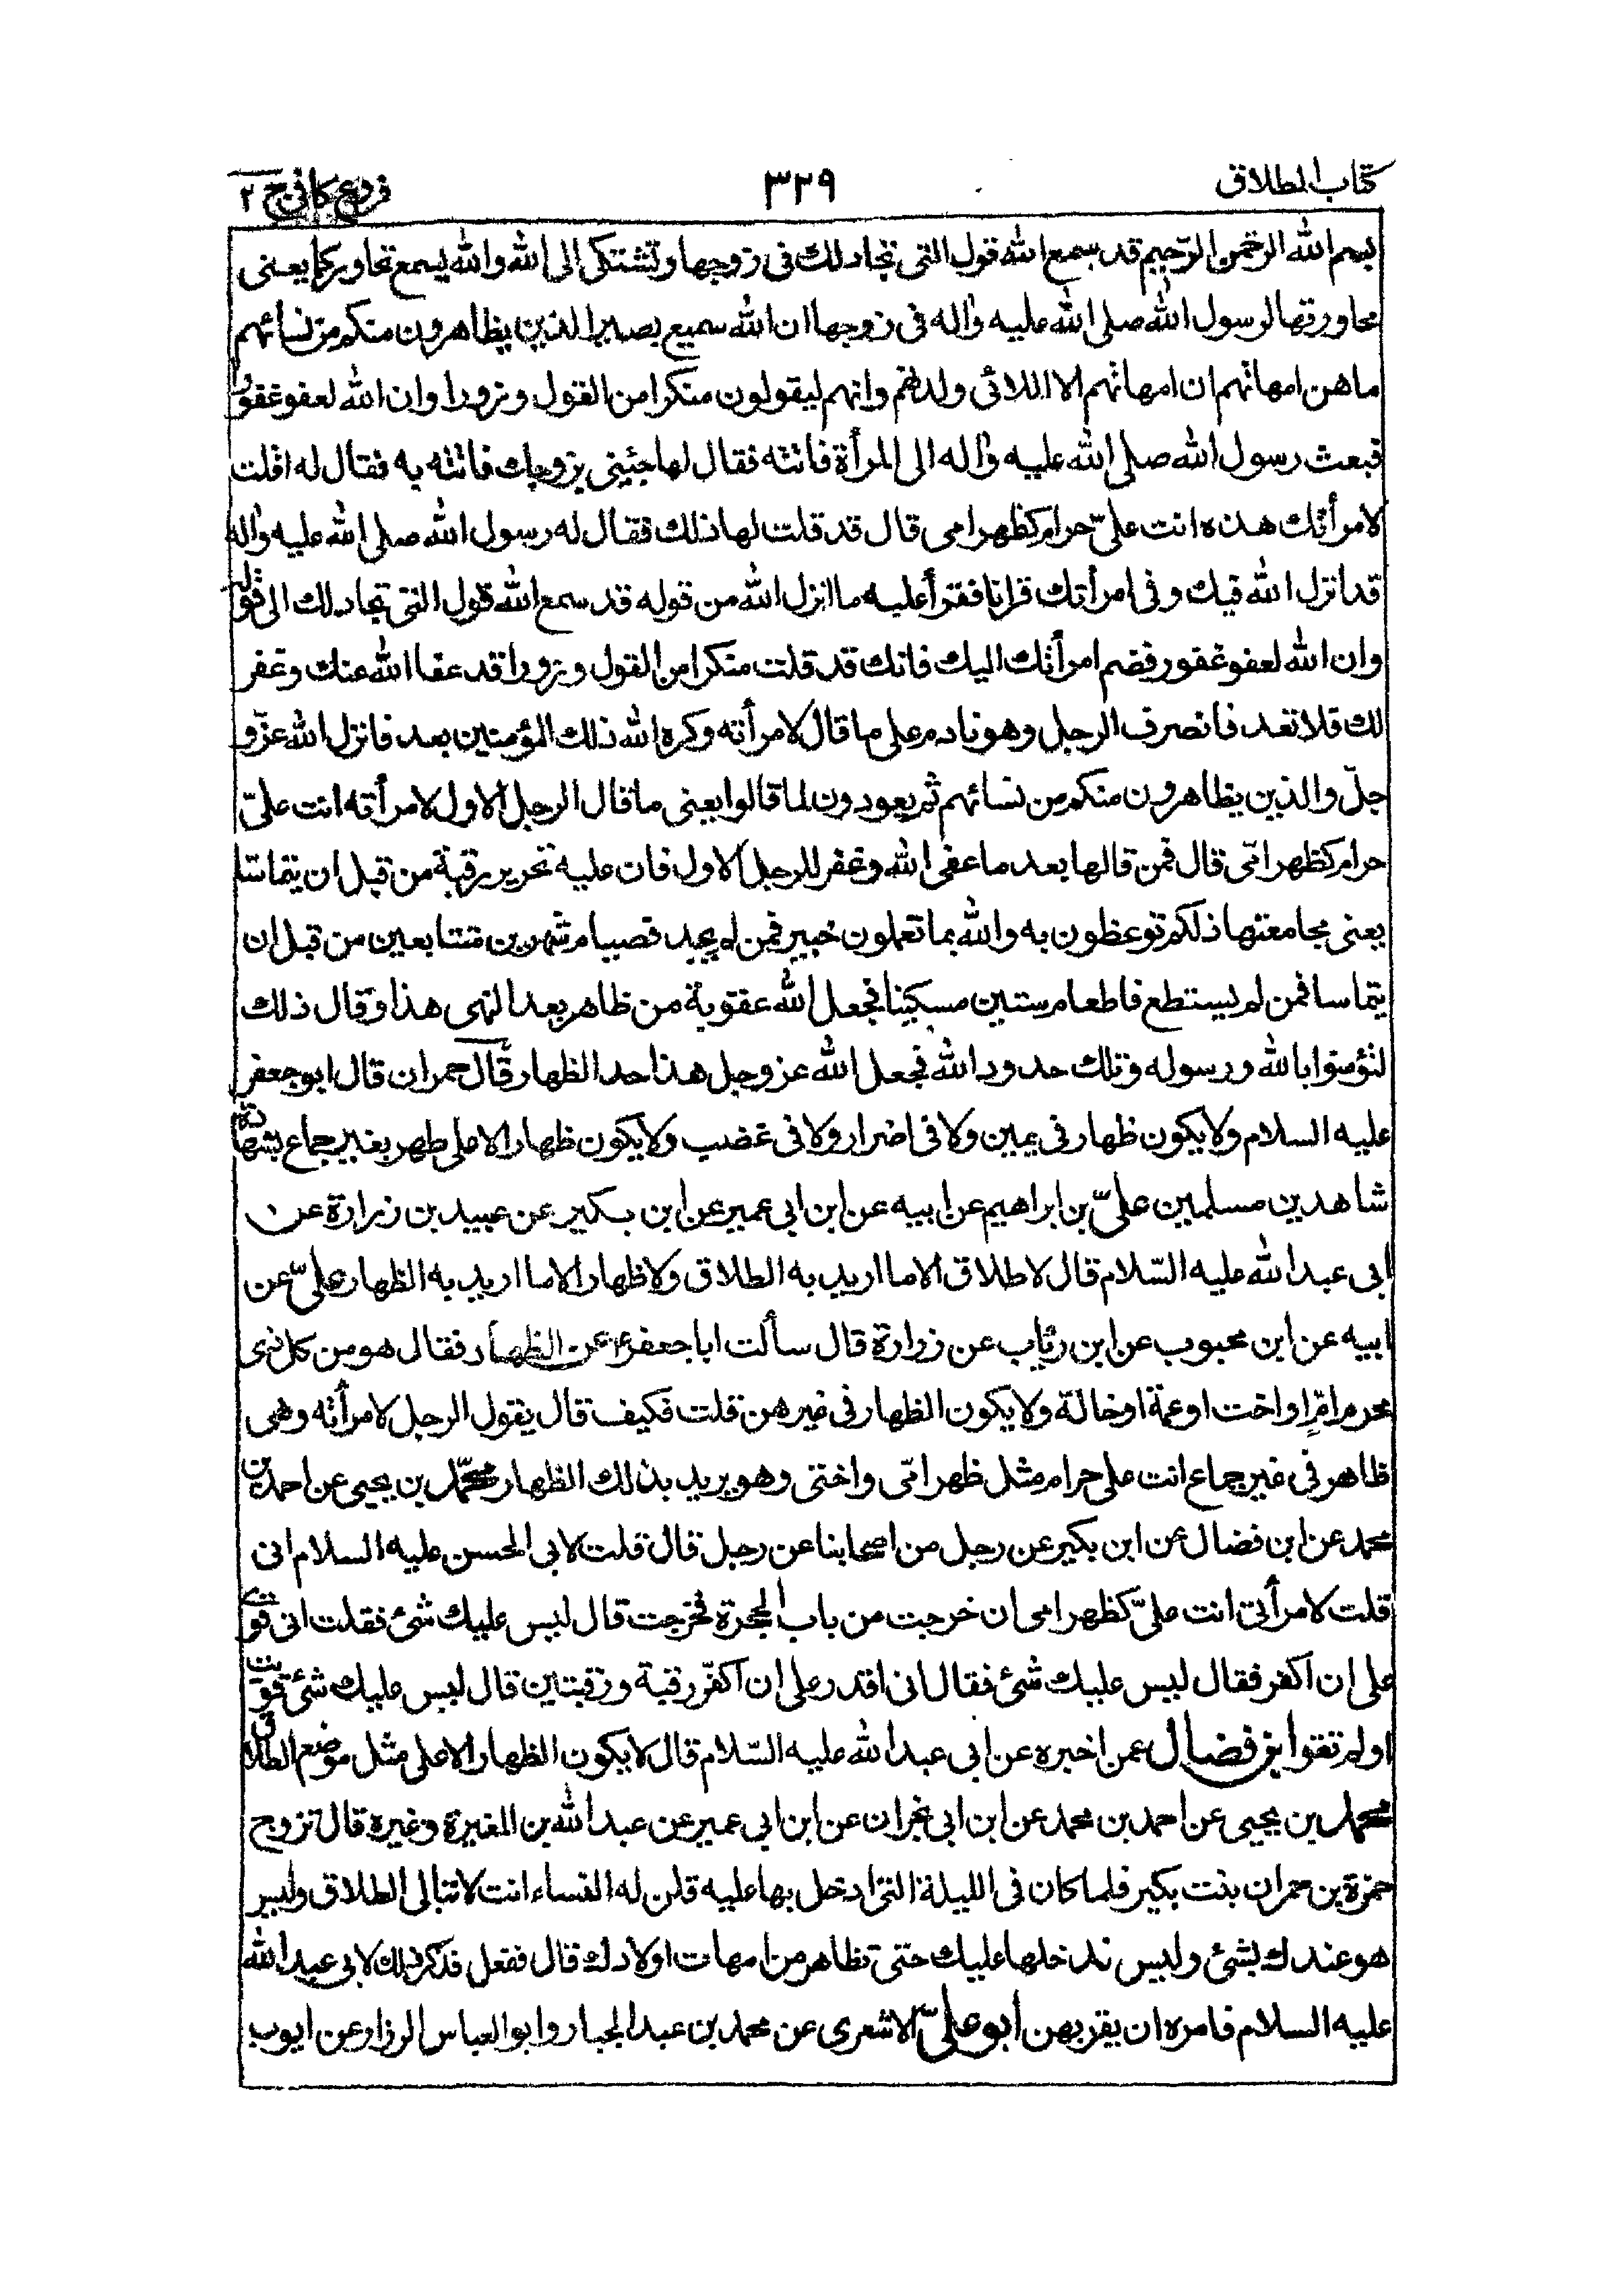 كتاب الطلاق ٣٢٩ فروع كافى ج ٢
بسم الله الرحمن الرّحيم قد سمع الله قول التى تجادلك فى زوجها وتشتكى الى الله والله يسمع تحاوركما يعنى
محاورتها لرسول الله صلى الله عليه واله فى زوجها ان الله سميع بصير الذين يظاهرون منكم من نسائهم
ما هن امهاتهم ان امهاتهم الا اللائى ولدنهم وانهم ليقولون منكرا من القول وزورا وان الله لعفو غفور
فبعث رسول الله صلى الله عليه واله الى المرأة فاتته فقال لها جئينى بزوجك فاتته به فقال له اقلت
لامرأتك هذه انت علىّ حرام كظهر امى قال قد قلت لها ذلك فقال له رسول الله صلى الله عليه واله
قد انزل الله فيك وفى امرأتك قرانا فقرأ عليه ما انزل الله من قوله قد سمع الله قول التى تجادلك الى قوله
وان الله لعفو غفور فضم امرأتك اليك فانك قد قلت منكرا من القول وزورا قد عفا الله عنك وغفر
لك فلا تعد فانصرف الرجل وهو نادم على ما قال لامرأته وكره الله ذلك المؤمنين بعد فانزل الله عزّو
جلّ والذين يظاهرون منكم من نسائهم ثم يعودون لما قالوا يعنى ما قال الرجل الاول لامرأته انت علىّ
حرام كظهر امّى قال فمن قالها بعد ما عفى الله وغفر للرجل الاول فان عليه تحرير رقبة من قبل ان يتماسّا
يعنى مجامعتها ذلكم توعظون به والله بما تعملون خبير فمن لم يجد فصيام شهرين متتابعين من قبل ان
يتماسا فمن لم يستطع فاطعام ستين مسكينا فجعل الله عقوبة من ظاهر بعد النهى هذا وقال ذلك
لتؤمنوا بالله ورسوله وتلك حدود الله فجعل الله عز وجل هذا حد الظهار قال حمران قال ابو جعفر
عليه السلام ولا يكون ظهار فى يمين ولا فى اضرار ولا فى غضب ولا يكون ظهار الا على طهر بغير جماع بشهادة
شاهدين مسلمين علىّ بن ابراهيم عن ابيه عن ابن ابى عمير عن ابن بكير عن عبيد بن زرارة عن
ابى عبد الله عليه السّلام قال لا طلاق الا ما اريد به الطلاق ولا ظهار الا ما اريد به الظهار علىّ عن
ابيه عن ابن محبوب عن ابن رئاب عن زرارة قال سألت ابا جعفر ع عن الظهار فقال هو من كل ذى
محرم امّ او اخت او عمة او خالة ولا يكون الظهار فى غيرهن قلت فكيف قال يقول الرجل لامرأته وهى
طاهر فى غير جماع انت على حرام مثل ظهر امّى واختى وهو يريد بذلك الظهار محمّد بن يحيى عن احمد بن
محمد عن ابن فضال عن ابن بكير عن رجل من اصحابنا عن رجل قال قلت لابى الحسن عليه السلام انى
قلت لامرأتى انت علىّ كظهر امى ان خرجت من باب الحجرة فخرجت قال ليس عليك شئ فقلت انى قوى
على ان اكفر فقال ليس عليك شئ فقال انى اقدر على ان اكفّر رقبة ورقبتين قال ليس عليك شئ قويت
او لم تقو ابن فضال عمن اخبره عن ابى عبد الله عليه السّلام قال لا يكون الظهار الا على مثل موضع الطلاق
محمد بن يحيى عن احمد بن محمد عن ابن ابى نجران عن ابن ابى عمير عن عبد الله بن المغيرة وغيره قال تزوج
حمزة بن حمران بنت بكير فلما كان فى الليلة التى ادخل بها عليه قلن له النساء انت لا تبالى الطلاق وليس
هو عندك بشئ وليس ندخلها عليك حتّى تظاهر من امهات اولادك قال ففعل فذكر ذلك لابى عبد الله
عليه السلام فامره ان يقربهن أبو علىّ الاشعرى عن محمد بن عبد الجبار وابو العباس الرزاز عن ايوب